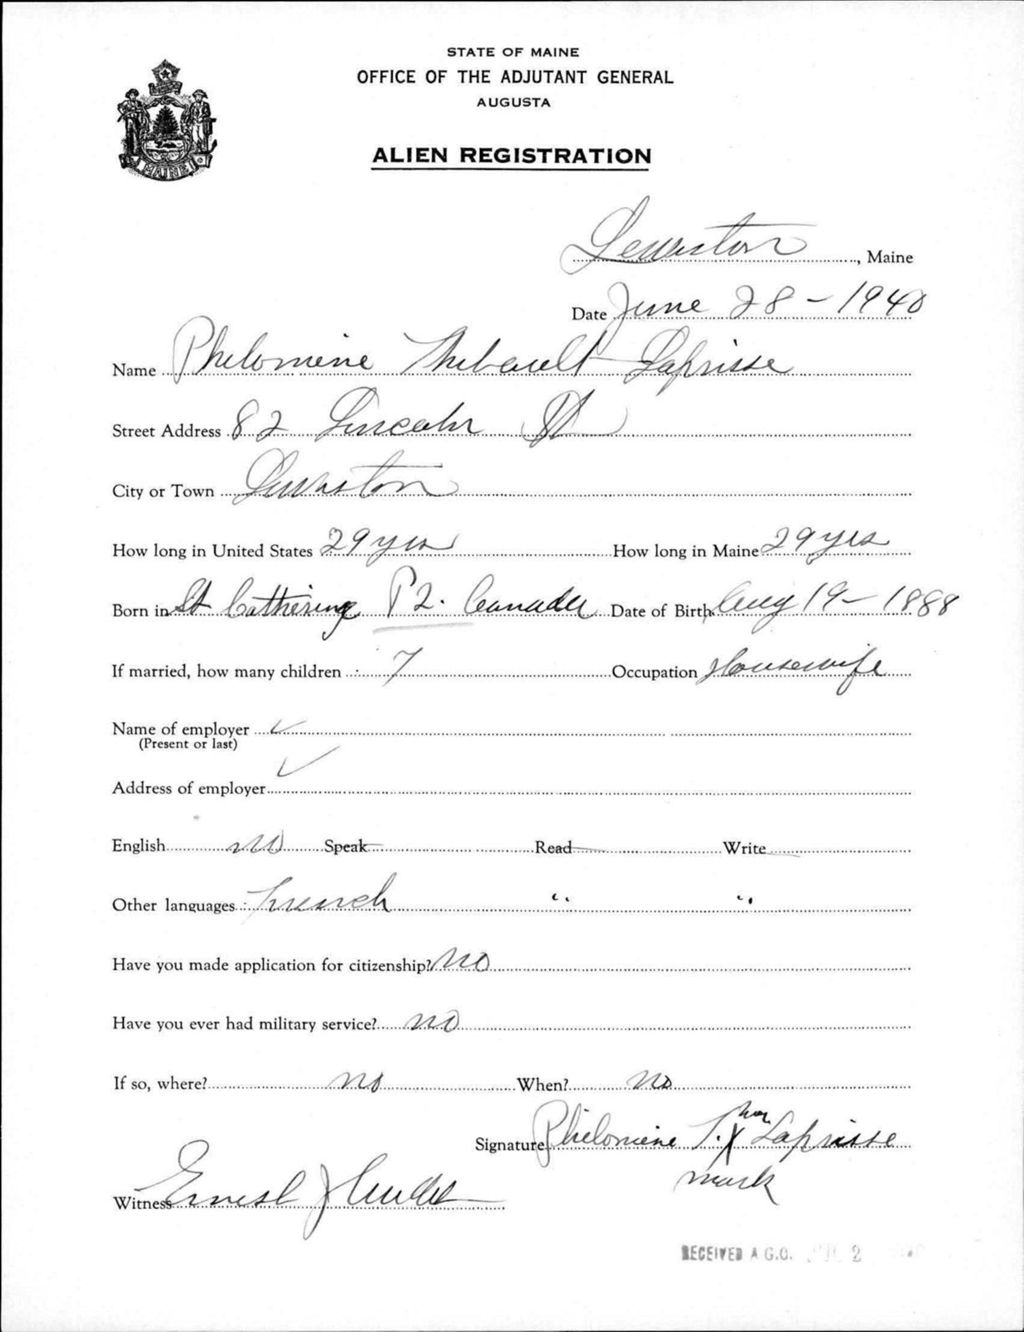 STATE OF MAINE
OFFICE OF THE ADJUTANT GENERAL
AUGUSTA
MAINE
ALIEN REGISTRATION
Lewiston, Maine
Date June 28 - 1940
Name Philomene Thibault Laprisse
Street Address 82 Lincoln St
City or Town Lewiston
How long in United States 29 yrs How long in Maine 29 yrs
Born in St Catherine P2. Canada Date of Birth Aug 19 - 1888
If married, how many children 7 Occupation Housewife
Name of employer
(Present or last)
Address of employer
English no Speak Read Write
Other languages French " "
Have you made application for citizenship? no
Have you ever had military service? no
If so, where? no When? no
Signature Philomene T. her X Laprisse
mark
Witness Ernest J
RECEIVED A.G.O. 2